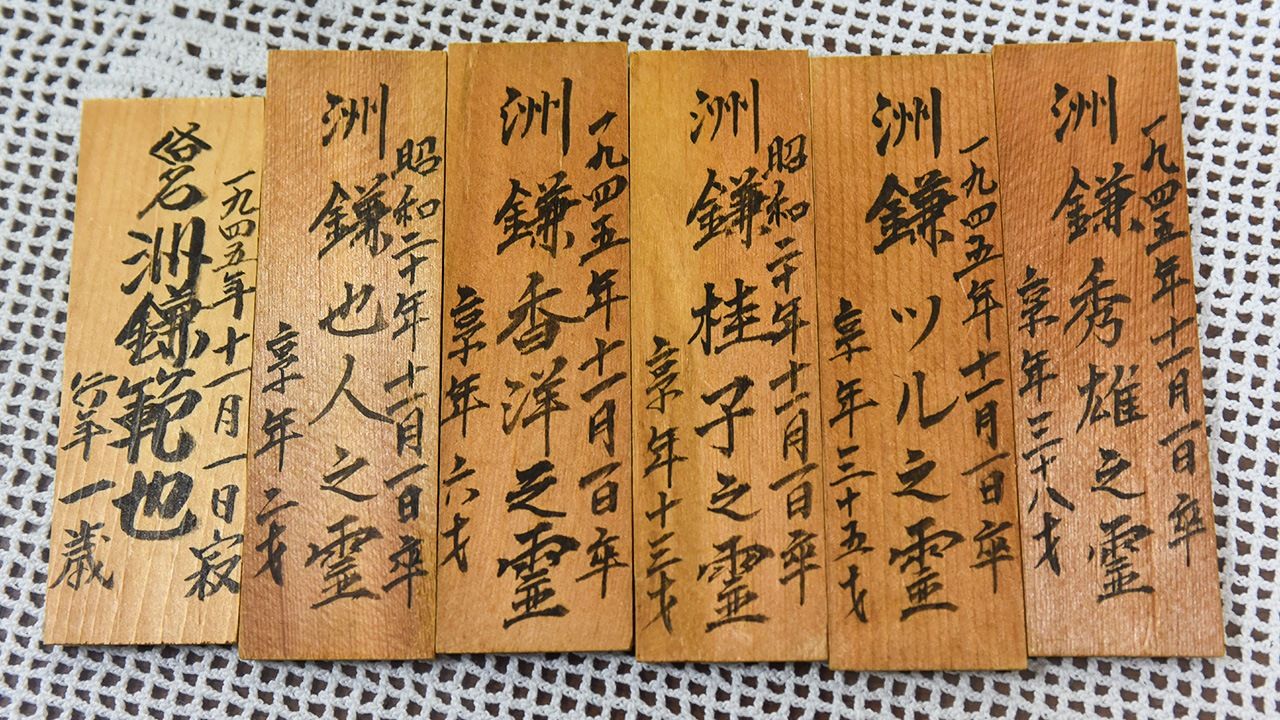 一九四五年十一月一日卒
洲鎌秀雄之霊
享年三十八才
一九四五年十一月一日卒
洲鎌ツル之霊
享年三十五才
昭和二十年十一月一日卒
洲鎌桂子之霊
享年十三才
一九四五年十一月一日卒
洲鎌香洋之霊
享年六才
昭和二十年十一月一日卒
洲鎌也人之霊
享年二才
一九四五年十一月一日寂
俗名洲鎌範也
年一歳